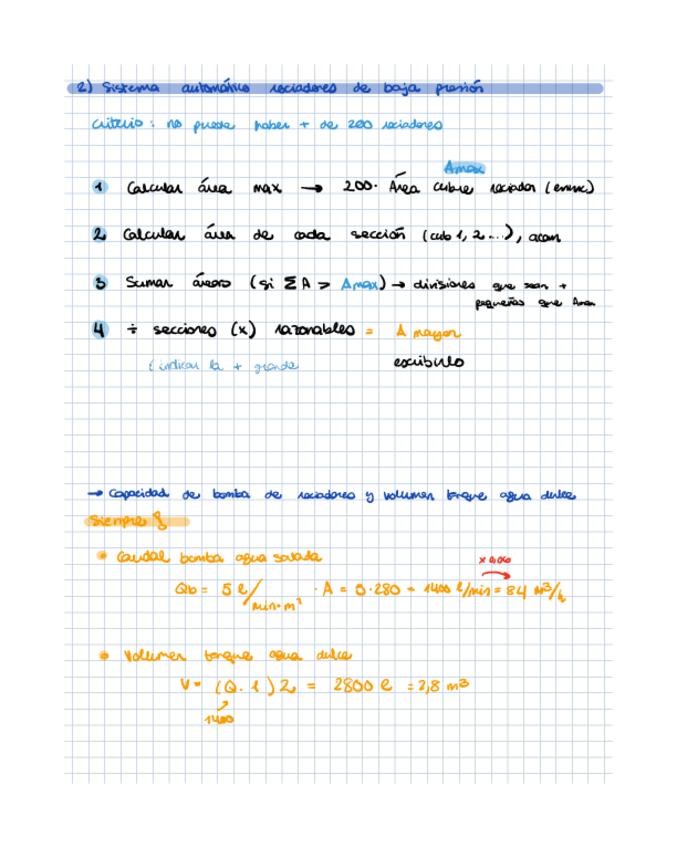 2) Sistema automático rociadores de baja presión
Criterio: no puede haber + de 200 rociadores
Amax
1 Calcular área max → 200 · Área cubre rociador (enunc)
2 Calcular área de cada sección (cub 1, 2...), acom
3 Sumar áreas (si ΣA > Amax) → divisiones que sean +
pequeñas que Amax
4 ÷ secciones (x) razonables = A mayor
(indicar la + grande escribirlo
→ Capacidad de bomba de rociadores y volumen tanque agua dulce
Siempre
• Caudal bomba agua salada
x 0,06
Qb = 5 l/min·m² · A = 5·280 = 1400 l/min = 84 m³/h
• Volumen tanque agua dulce
V = (Q · 1) 2 = 2800 l = 2,8 m³
1400